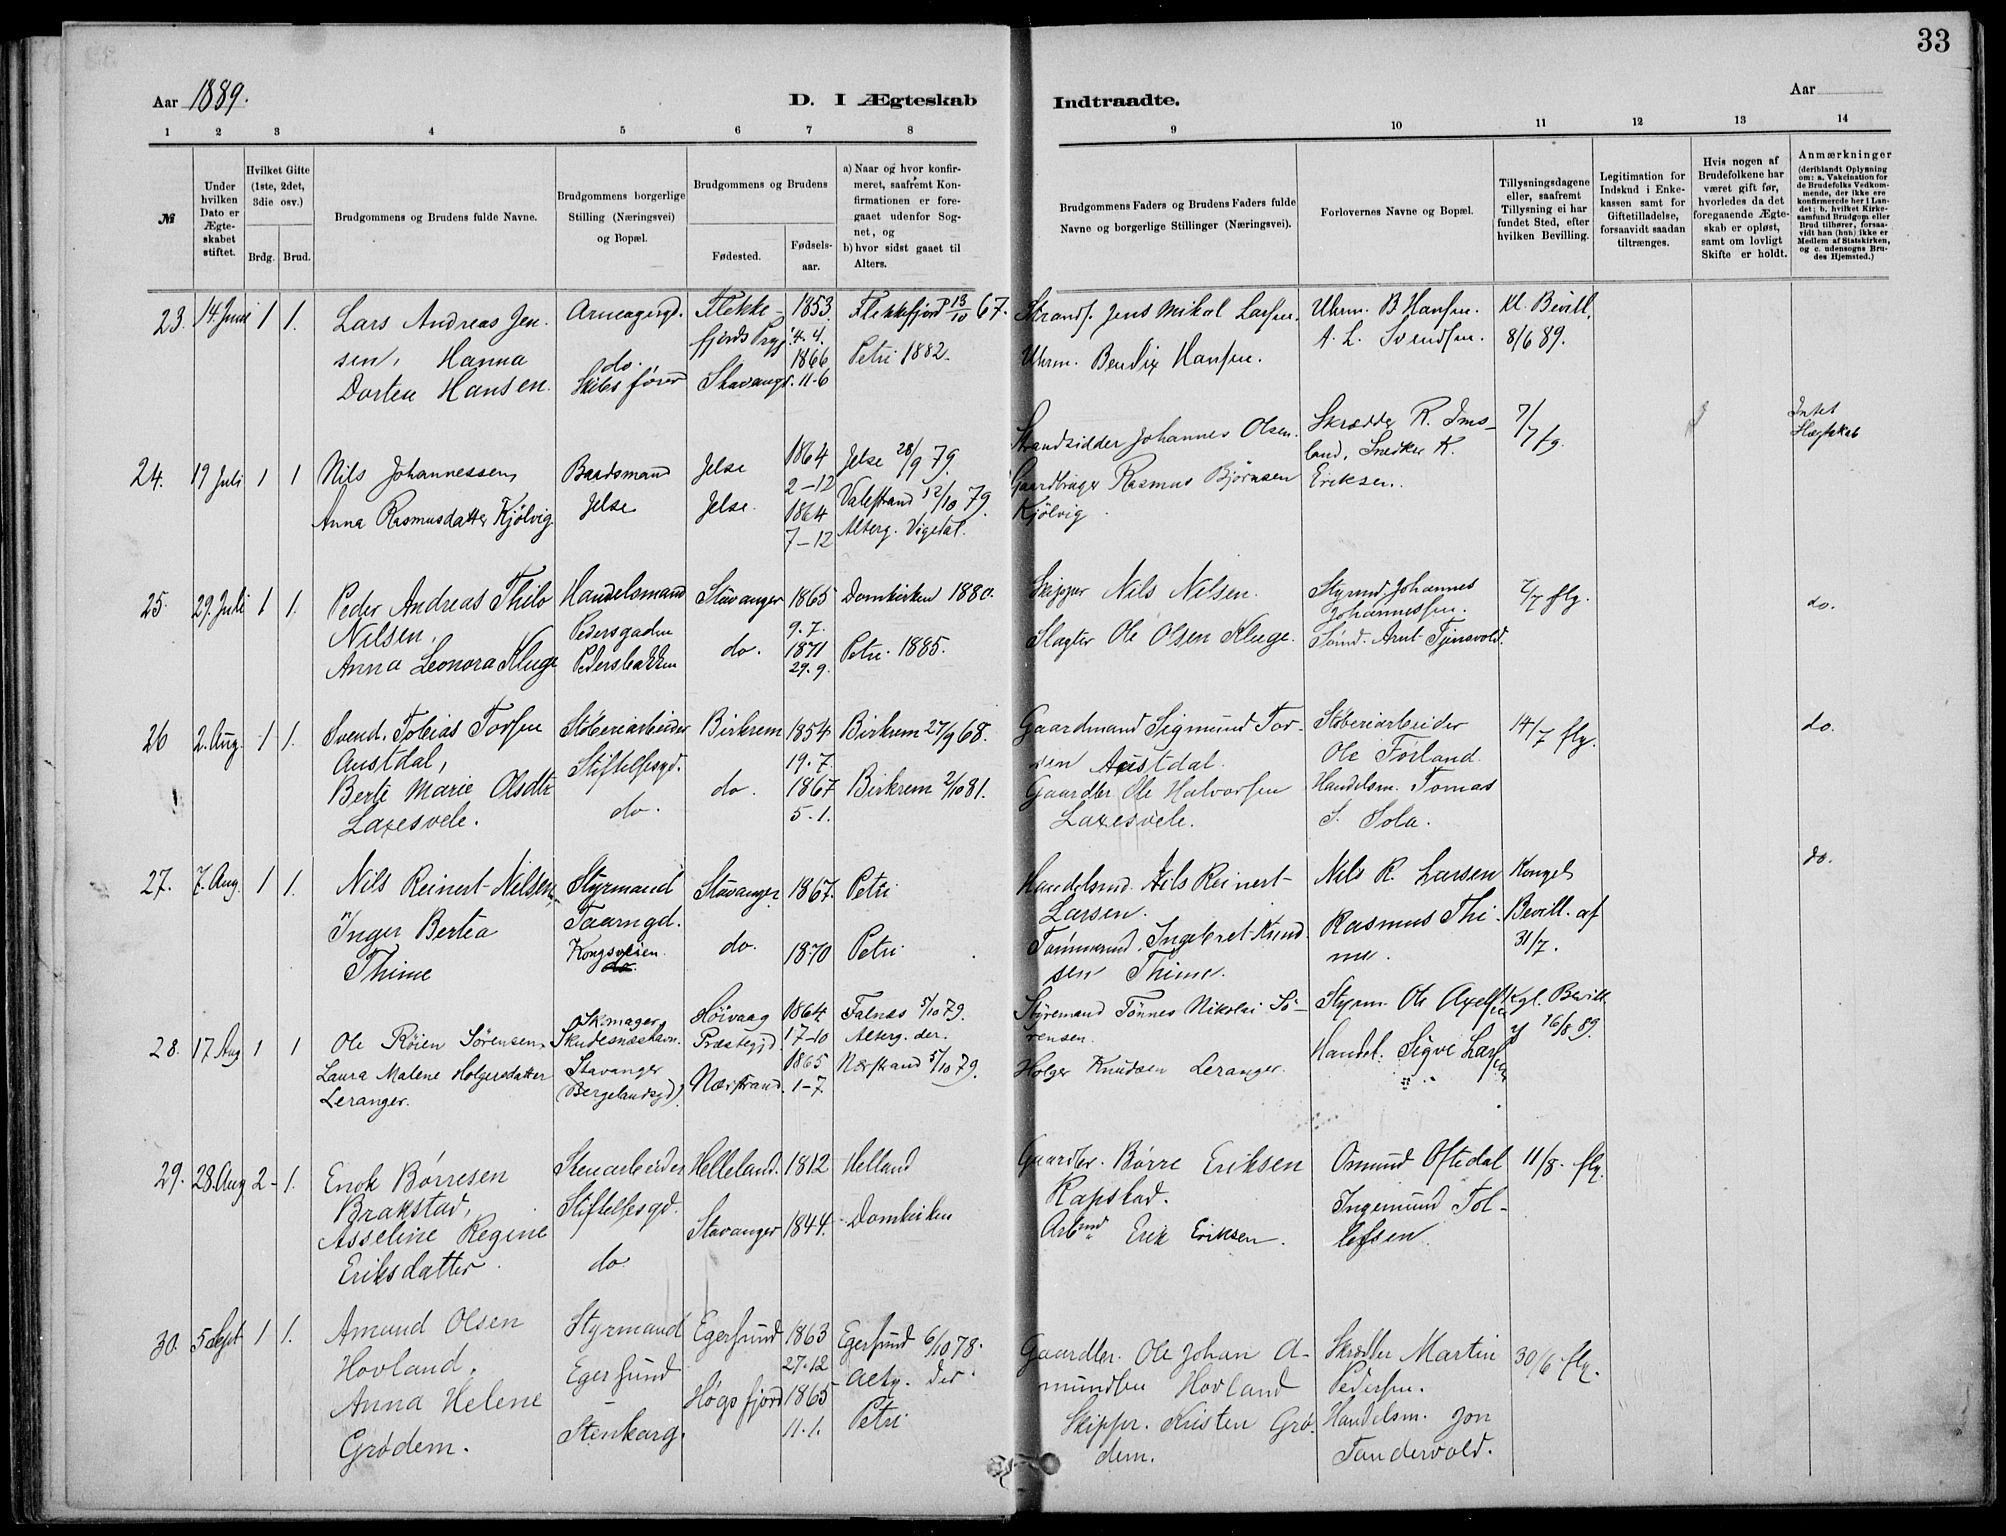 33
Aar 1889.
D. I Ægteskab
Indtraadte.
Aar
1 2 3 4 5 6 7 8 9 10 11 12 13 14
№
Under hvilken Dato er Ægteskabet stiftet.
Hvilket Gifte (1ste, 2det, 3die osv.)
Brdg. Brud.
Brudgommens og Brudens fulde Navne.
Brudgommens borgerlige Stilling (Næringsvei) og Bopæl.
Brudgommens og Brudens
Fødested.
Fødselsaar.
a) Naar og hvor konfirmeret, saafremt Konfirmationen er foregaaet udenfor Sognet, og
b) hvor sidst gaaet til Alters.
Brudgommens Faders og Brudens Faders fulde Navne og borgerlige Stillinger (Næringsvei).
Forlovernes Navne og Bopæl.
Tillysningsdagene eller, saafremt Tillysning ei har fundet Sted, efter hvilken Bevilling.
Legitimation for Indskud i Enkekassen samt for Giftetilladelse, forsaavidt saadan tiltrænges.
Hvis nogen af Brudefolkene har været gift før, hvorledes da det foregaaende Ægteskab er opløst, samt om lovligt Skifte er holdt.
Anmærkninger (deriblandt Oplysning om: a. Vakcination for de Brudefolks Vedkommende, der ikke ere konfirmerede her i Landet; b. hvilket Kirkesamfund Brudgom eller Brud tilhører, forsaavidt han (hun) ikke er Medlem af Statskirken, og c. udensogns Brudes Hjemsted.)
23. 14. Juni 1 1. Lars Andreas Jen-
sen, Hanna
Dortea Hansen.
Arneagergd.
do.
Skibsfører
Flekke-
fjords Prgj.
Stavanger
1853.
4. 4.
1866
11-6
Flekkefjord 13/10 67.
Petri 1882.
Strands. Jens Mikal Larsen.
Uhrm. Bendix Hansen.
Uhrm. B Hansen.
A. L. Svendsen.
Kl. Bevill.
8/6 89.
24. 19 Juli 1 1 Nils Johannessen,
Anna Rasmusdatter Kjölvig
Baadsmand
Jelse
Jelse
Jelse.
1864
2-12
1864
7-12
Jelse 28/9 79.
Valestrand 12/10 79.
Alterg. Vigedal.
Strandsidder Johannes Olsen.
Gaardbruger Rasmus Bjørnsen
Kjölvig.
Skrædder R. Ims-
land, Snedker K.
Eriksen.
7/7 fg.
Intet
Slægtskab
25. 29. Juli 1 1. Peder Andreas Thilo
Nilsen,
Anna Leonora Kluge
Handelsmand
Pedersgaden
Pedersbakken
Stavanger
do.
1865
9. 7.
1871
29. 9.
Domkirken 1880.
Petri 1885.
Skipper Nils Nilsen.
Slagter Ole Olsen Kluge.
Styrmd. Johannes
Johannessen.
Arnt Tjensvold.
7/7 flg.
do.
26 2. Aug. 1 1. Svend Tobias Torsen
Austdal,
Berte Marie Olsdtr
Laxesvele.
Støberiarbeider
Stiftelsesgd.
do.
Birkrem
do.
1854
19. 7.
1867
5. 1.
Birkrem 27/9 68.
Birkrem 2/10 81.
Gaardmand Sigmund Tor-
sen Austdal.
Gaardbr. Ole Halvorsen
Laxesvele.
Støberiarbeider
Ole Førland.
Handelsm. Tomas
S. Sola.
14/7 flg.
do.
27. 7. Aug. 1 1. Nils Reinert Nilsen,
Inger Bertea
Thime
Styrmand
Taarngd.
Kongsveien.
do.
Stavanger
do.
1867.
1870
Petri
Petri
Handelsmd. Nils Reinert
Larsen.
Tømmermd. Ingebret Knud-
sen Thime.
Nils R. Larsen
Rasmus Thi-
me.
Kongel
Bevill. af
31/7.
do.
28. 17 Aug 1 1 Ole Röien Sörensen,
Laura Malene Holgersdatter
Leranger.
Skomager,
Skudesneshavn.
Stavanger
(Bergelandsgd).
Höivaag
Præstegjd.
Nærstrand.
1864
17-10
1865
1-7.
Falnæs 5/10 79.
Alterg. der.
Nærstrand 5/10 79.
Styremand Tönnes Nikolai Sö-
rensen.
Holger Knudsen Leranger.
Styrm. Ole Axelsen
Handel. Sigve Larsen
Kgl. Bevill.
af 16/8 89.
29. 28. Aug 2 1. Enok Børresen
Brakstad,
Asseline Regine
Eriksdatter.
Stenarbeider
Stiftelsesgd.
do.
Helleland.
Stavanger
1812
1844.
Helland
Domkirken
Gaardbr. Børre Eriksen
Rapstad.
Arbmd. Erik Eriksen.
Omund Oftedal
Ingemund Tol-
lefsen.
11/8. flg.
30. 5 Sept 1 1. Amund Olsen
Hovland,
Anna Helene
Grødem.
Styrmand
Egersund
Stenkarg.
Egersund
Høgsfjord
1863
27. 12
1865
11. 1.
Egersund 6/10 78.
Altg. der.
Petri
Gaardbr. Ole Johan A-
mundsen Hovland
Skippr. Kristen Grø-
dem.
Skrædder Martin
Pedersen.
Handelsm. Jon
Tandervold.
30/6 flg.